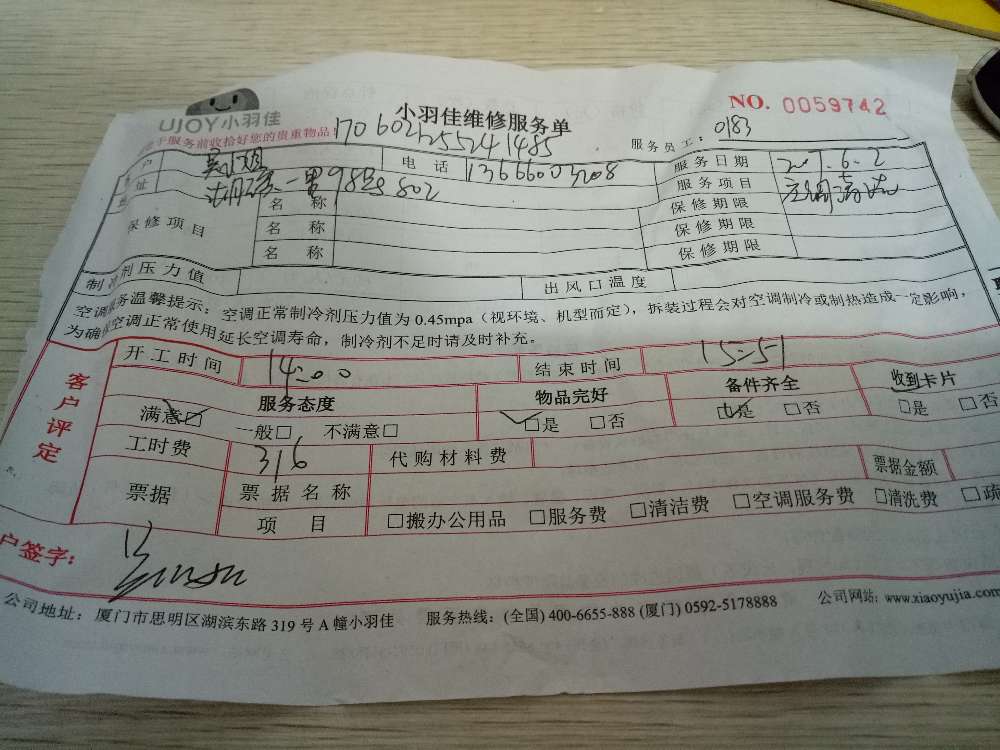 UJOY小羽佳
小羽佳维修服务单
NO. 0059742
服务前收拾好您的贵重物品
服务员工： 0183
户 电话 13666003208 服务日期
址 一里98号802 服务项目 空调清洗
保修项目 名称 保修期限
名称 保修期限
名称 保修期限
制冷剂压力值 出风口温度
空调服务温馨提示：空调正常制冷剂压力值为0.45mpa（视环境、机型而定），拆装过程会对空调制冷或制热造成一定影响，
为确保空调正常使用延长空调寿命，制冷剂不足时请及时补充。
客户评定
开工时间 14:00 结束时间 15:51
服务态度 物品完好 备件齐全 收到卡片
满意□ 一般□ 不满意□ □是 □否 □是 □否 □是 □否
工时费 316 代购材料费
票据 票据名称 票据金额
项目 □搬办公用品 □服务费 □清洁费 □空调服务费 □清洗费 □疏
户签字：
公司地址：厦门市思明区湖滨东路319号A幢小羽佳 服务热线：(全国) 400-6655-888 (厦门) 0592-5178888 公司网站：www.xiaoyujia.com